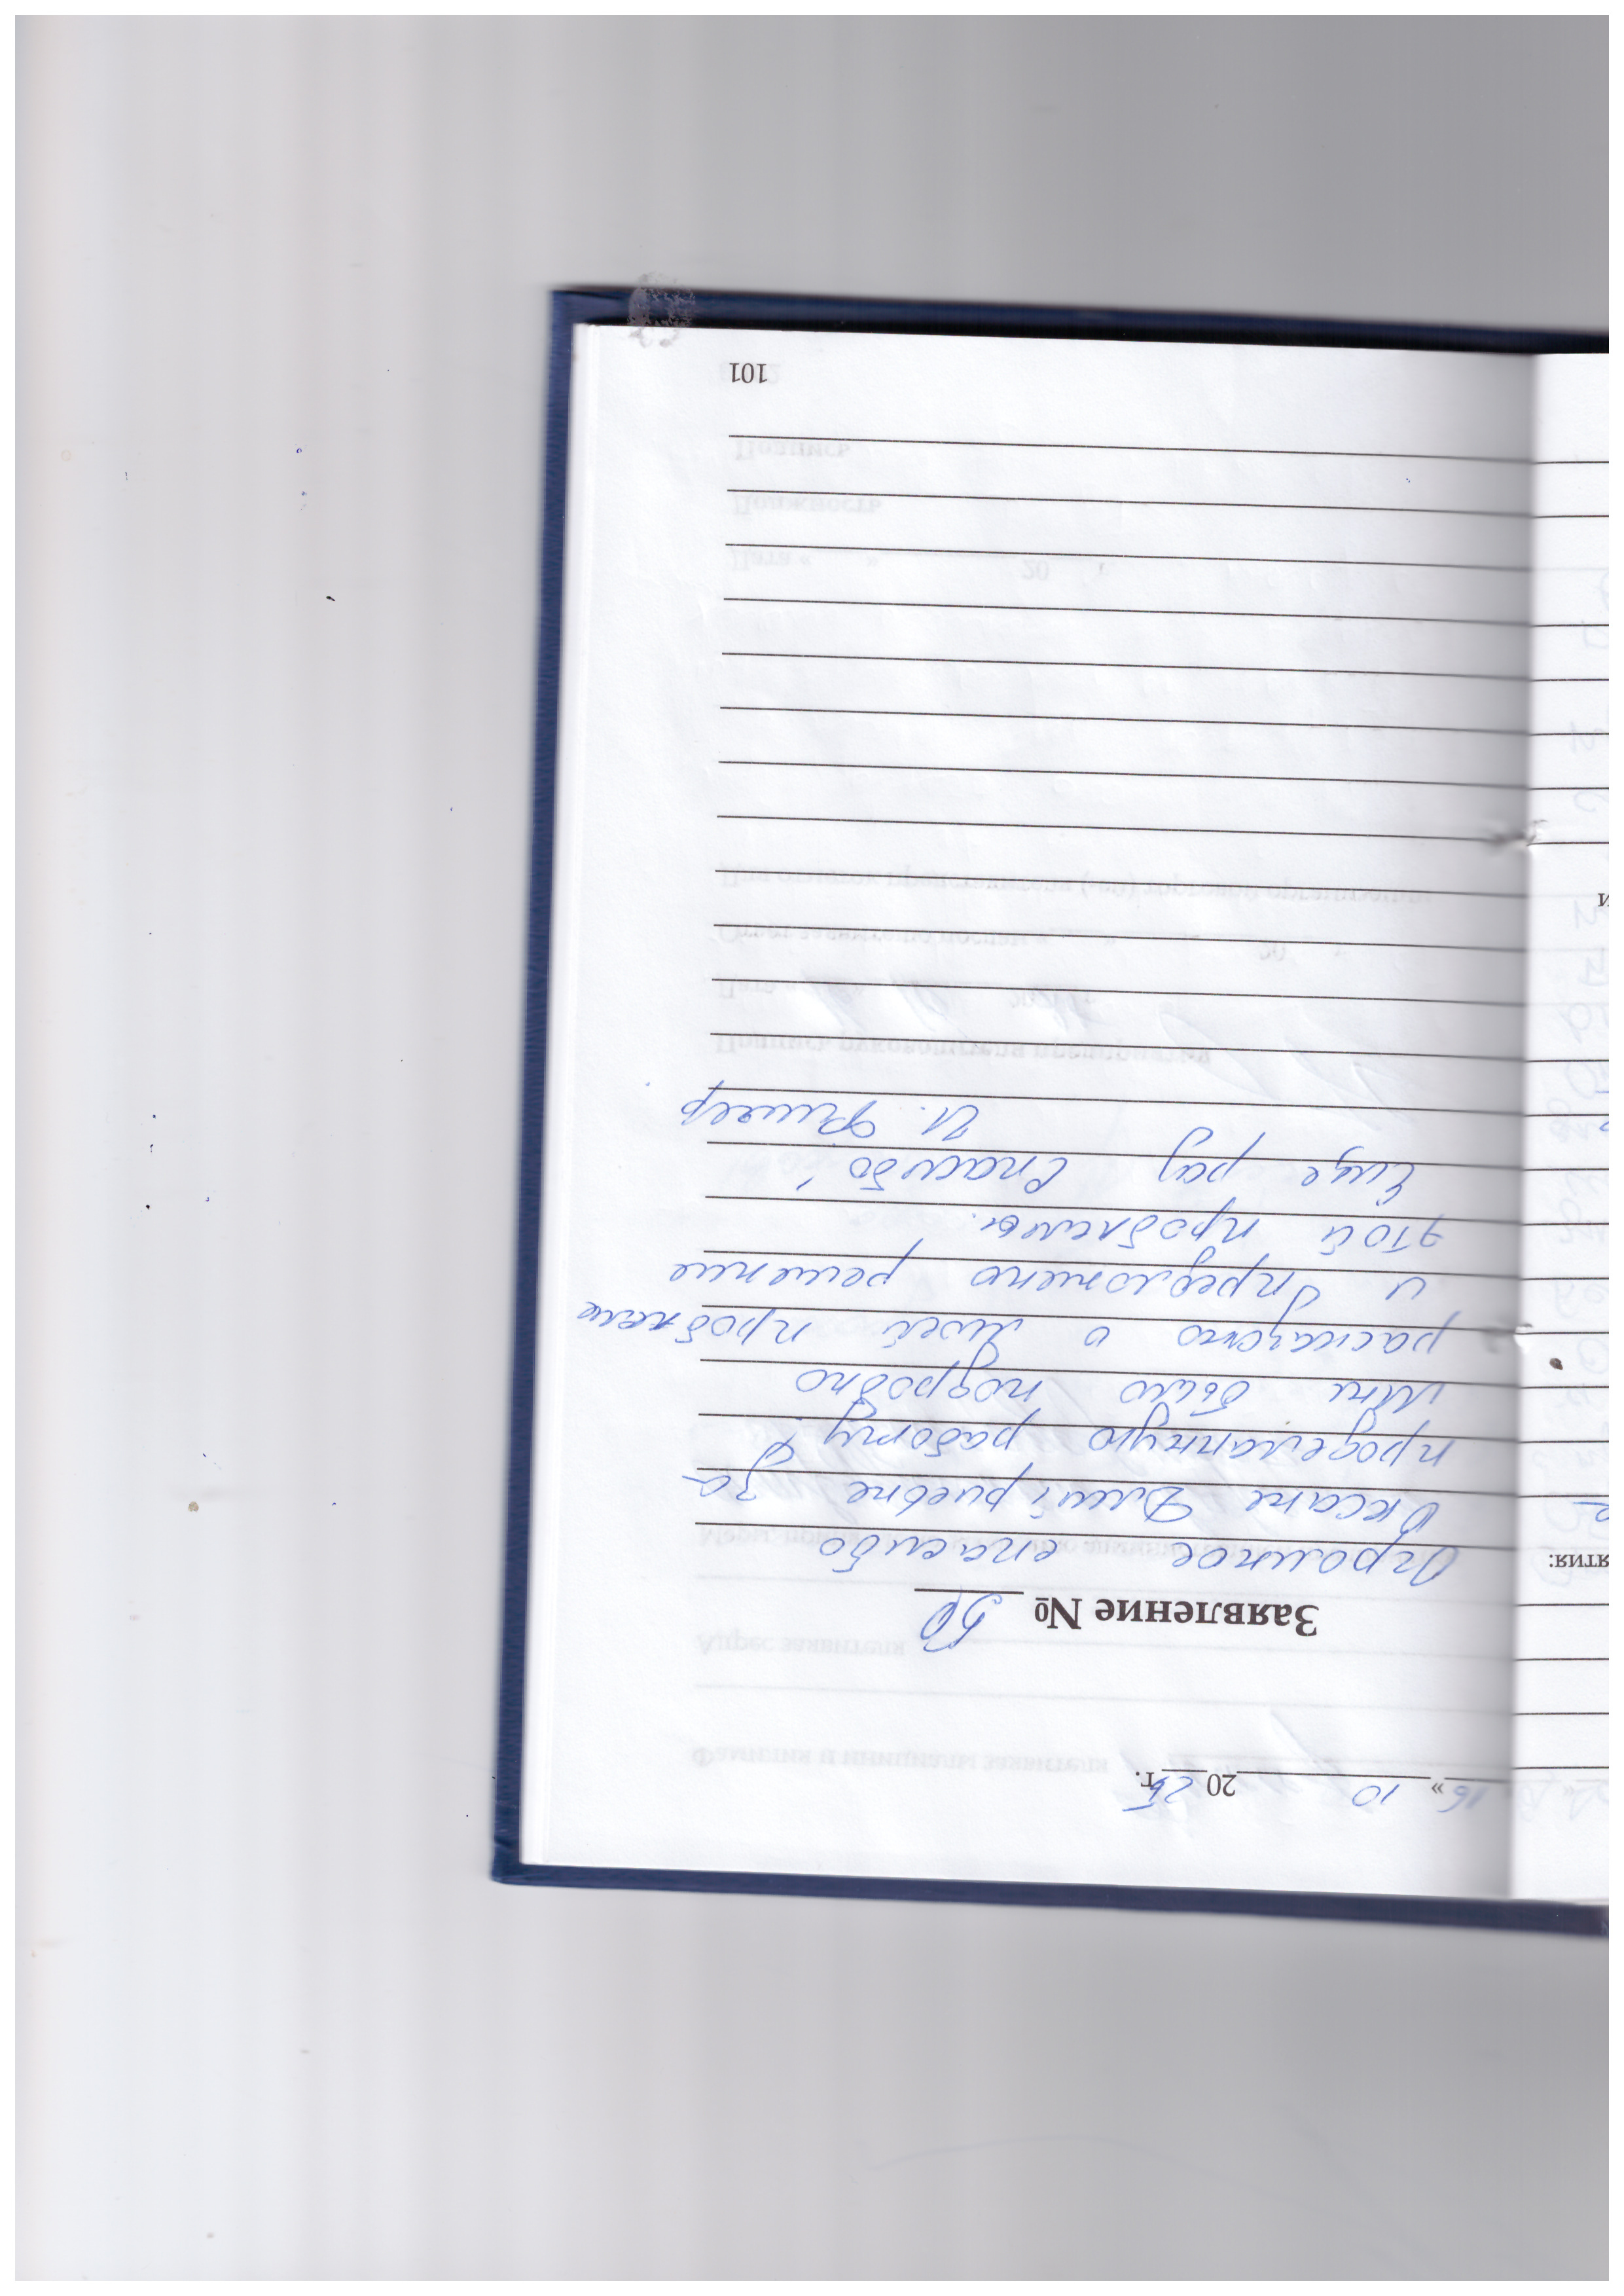 16 » 10 20 25 г.
Заявление № 50
Огромное спасибо
Оксане Дмитриевне за
проделанную работу.
Мне было подробно
рассказано о моей проблеме
и предложено решение
этой проблемы.
Еще раз Спасибо!
И. Фишер
101